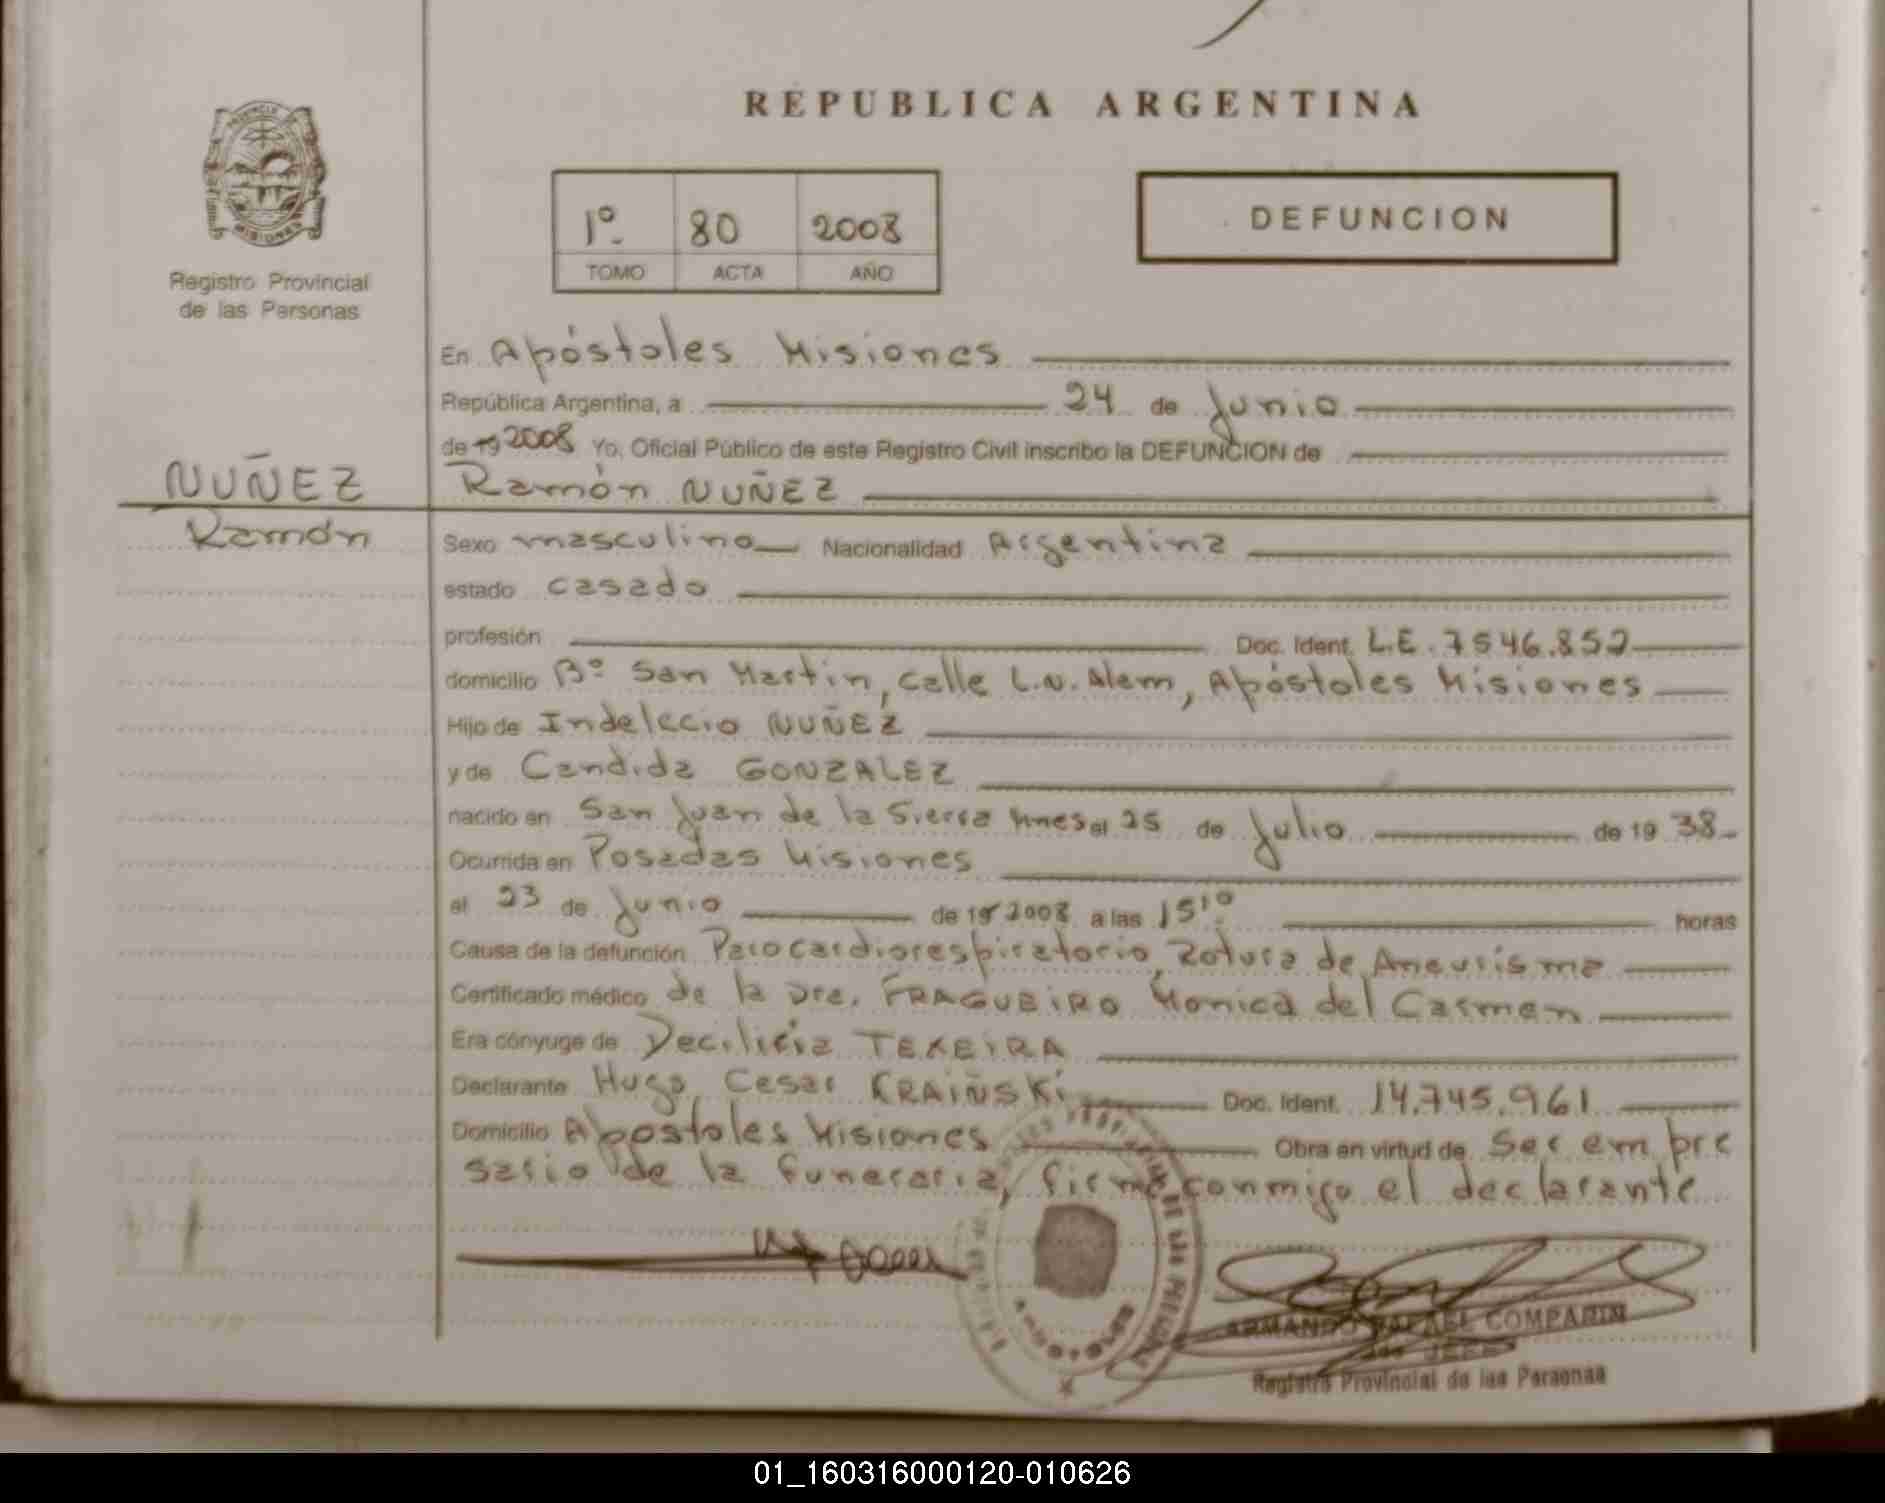 REPUBLICA ARGENTINA
PROVINCIA
MISIONES
Registro Provincial
de las Personas
1º 80 2008
TOMO ACTA AÑO
DEFUNCION
En Apóstoles Misiones
República Argentina, a 24 de Junio
de 19 2008 Yo, Oficial Público de este Registro Civil inscribo la DEFUNCION de
NUÑEZ
Ramón NUÑEZ
Ramón
Sexo masculino Nacionalidad Argentina
estado casado
profesión Doc. Ident. L.E. 7546.852
domicilio Bº San Martín, calle L.N. Alem, Apóstoles Misiones
Hijo de Indelecio NUÑEZ
y de Candida GONZALEZ
nacido en San Juan de la Sierra Mnes el 25 de Julio de 19 38
Ocurrida en Posadas Misiones
el 23 de Junio de 19 2008 a las 15¹⁰ horas
Causa de la defunción Parocardiorespiratorio, Rotura de Aneurisma
Certificado médico de la Dra. FRAGUEIRO Monica del Carmen
Era cónyuge de TEXEIRA
Declarante Hugo Cesar KRAIÑSKI Doc. Ident. 14.745.961
Domicilio Apostoles Misiones Obra en virtud de Ser empre
sario de la funeraria, firma conmigo el declarante
ARMANDO RAFAEL COMPARIN
JEFE
Registro Provincial de las Personas
01_160316000120-010626